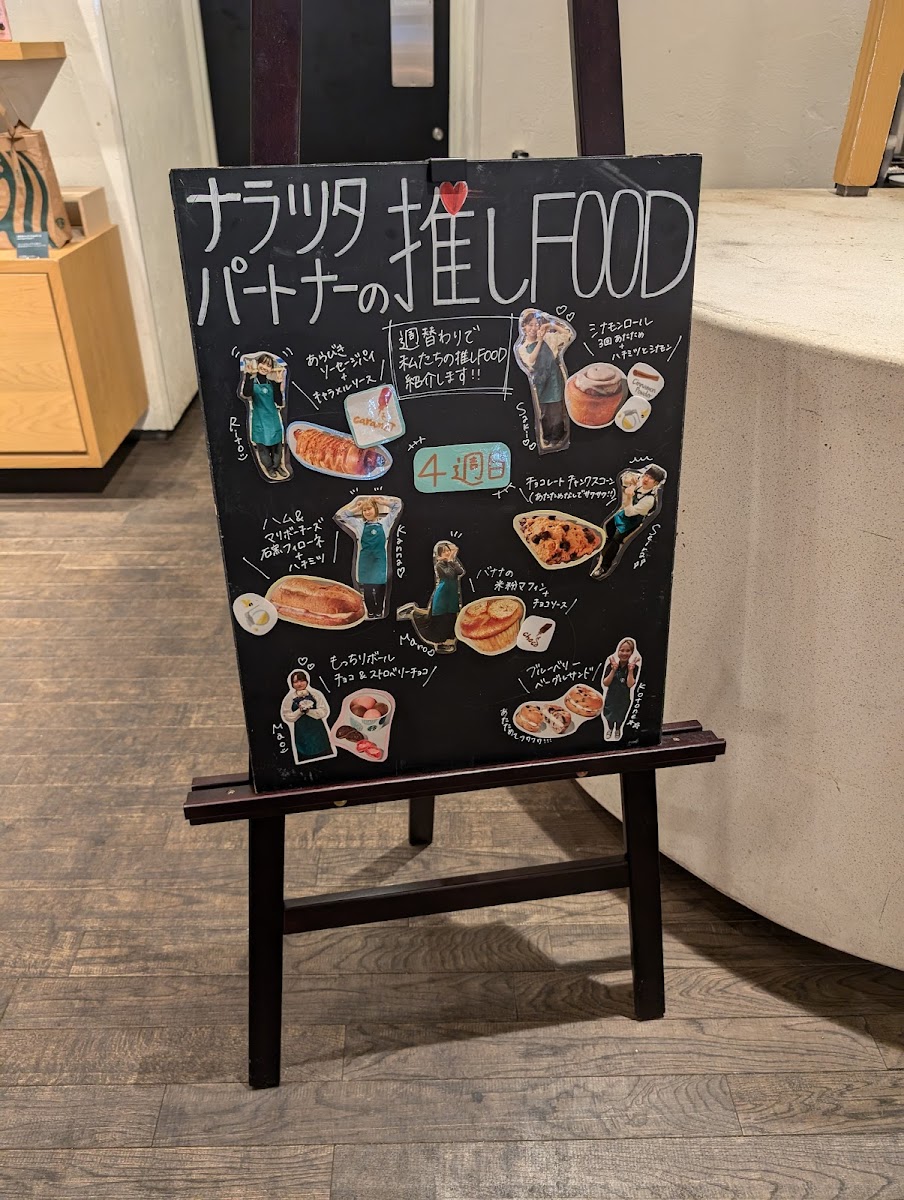 ナラツタ
パートナーの推しFOOD
週替わりで
私たちの推しFOOD
紹介します!!
4週目
あらびき
ソーセージパイ
+
キャラメルソース
caramel
Rito
シナモンロール
3回あたため
+
ハチミツとシナモン
Cinnamon
Powder
Saki♡
ハム&
マリボーチーズ
石窯フィローネ
+
ハチミツ
Kacca♡
チョコレートチャンクスコーン
(あたためなしでサクサク!!)
バナナの
米粉マフィン+
チョコソース
choco
Maroo
もっちりボール
チョコ&ストロベリーチョコ
Mao
ブルーベリー
ベーグルサンド
Kotone